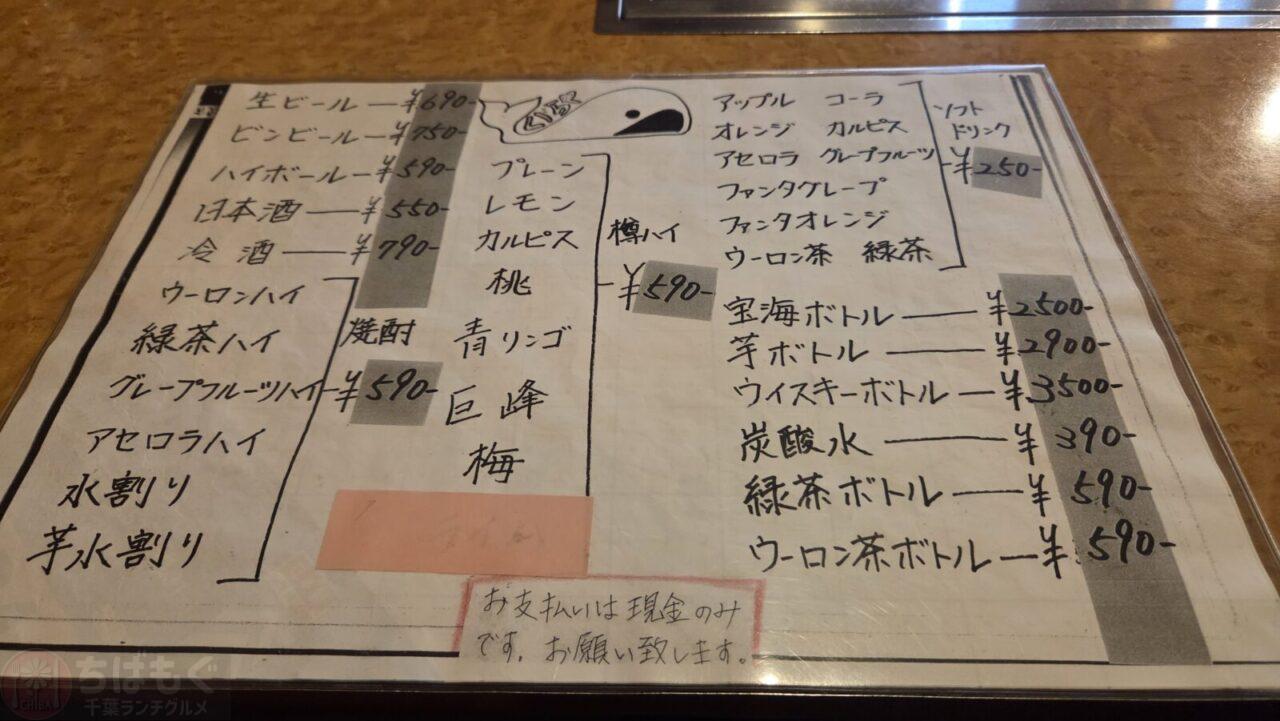 生ビール ― ¥690-
ビンビール ― ¥750-
ハイボール ― ¥590-
日本酒 ― ¥550-
冷酒 ― ¥790-
ウーロンハイ
緑茶ハイ
グレープフルーツハイ
アセロラハイ
水割り
芋水割り
焼酎
¥590-
プレーン
レモン
カルピス
桃
青リンゴ
巨峰
梅
樽ハイ
¥590-
アップル コーラ
オレンジ カルピス
アセロラ グレープフルーツ
ファンタグレープ
ファンタオレンジ
ウーロン茶 緑茶
ソフト
ドリンク
¥250-
宝海ボトル ― ¥2500-
芋ボトル ― ¥2900-
ウイスキーボトル ― ¥3500-
炭酸水 ― ¥390-
緑茶ボトル ― ¥590-
ウーロン茶ボトル ― ¥590-
お支払いは現金のみ
です。お願い致します。
ちばもぐ
千葉ランチグルメ
CHIBA